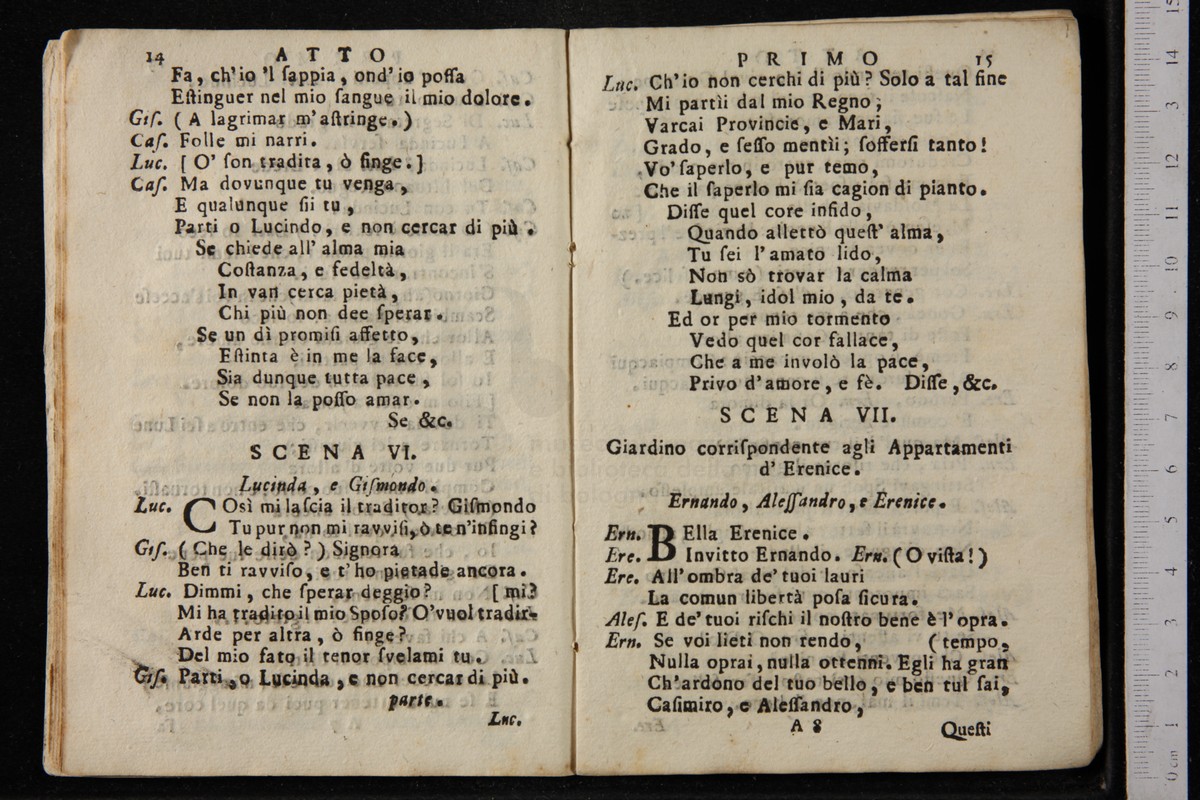 14 ATTO
Fa, ch'io 'l ſappia, ond' io poſſa
Eſtinguer nel mio ſangue il mio dolore.
Giſ. ( A lagrimar m'aſtringe. )
Caſ. Folle mi narri.
Luc. [ O' ſon tradita, ò finge. ]
Caſ. Ma dovunque tu venga,
E qualunque ſii tu,
Parti o Lucindo, e non cercar di più.
Se chiede all' alma mia
Coſtanza, e fedeltà,
In van cerca pietà,
Chi più non dee ſperar.
Se un dì promiſi affetto,
Eſtinta è in me la face,
Sia dunque tutta pace,
Se non la poſſo amar.
Se &c.
SCENA VI.
Lucinda, e Giſmondo.
Luc. COsì mi laſcia il traditor? Giſmondo
Tu pur non mi ravviſi, ò te n'infingi?
Giſ. ( Che le dirò ? ) Signora
Ben ti ravviſo, e t'ho pietade ancora.
Luc. Dimmi, che ſperar deggio? [ mi?
Mi ha tradito il mio Spoſo? O'vuol tradir-
Arde per altra, ò finge?
Del mio fato il tenor ſvelami tu.
Giſ. Parti, o Lucinda, e non cercar di più.
parte.
Luc.
PRIMO 15
Luc. Ch'io non cerchi di più? Solo a tal fine
Mi partìi dal mio Regno;
Varcai Provincie, e Mari,
Grado, e ſeſſo mentìi; ſofferſi tanto!
Vo' ſaperlo, e pur temo,
Che il ſaperlo mi ſia cagion di pianto.
Diſſe quel core infido,
Quando allettò queſt' alma,
Tu ſei l'amato lido,
Non sò trovar la calma
Lungi, idol mio, da te.
Ed or per mio tormento
Vedo quel cor fallace,
Che a me involò la pace,
Privo d'amore, e fè. Diſſe, &c.
SCENA VII.
Giardino corriſpondente agli Appartamenti
d' Erenice.
Ernando, Aleſſandro, e Erenice.
Ern. BElla Erenice.
Ere. Invitto Ernando. Ern. ( O viſta! )
Ere. All'ombra de' tuoi lauri
La comun libertà poſa ſicura.
Aleſ. E de' tuoi riſchi il noſtro bene è l'opra.
Ern. Se voi lieti non rendo, ( tempo,
Nulla oprai, nulla ottenni. Egli ha gran
Ch'ardono del tuo bello, e ben tul ſai,
Caſimiro, e Aleſſandro,
A 8 Queſti